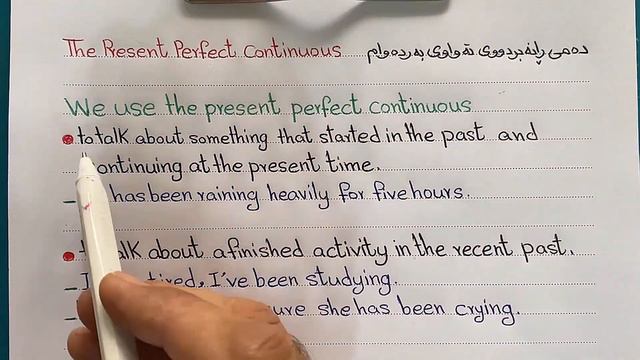 The Present Perfect Continuous دەمی ڕانەبردووی تەواوی بەردەوام
We use the present perfect continuous
to talk about something that started in the past and
continuing at the present time.
has been raining heavily for five hours.
talk about a finished activity in the recent past.
tired, I've been studying.
she has been crying.